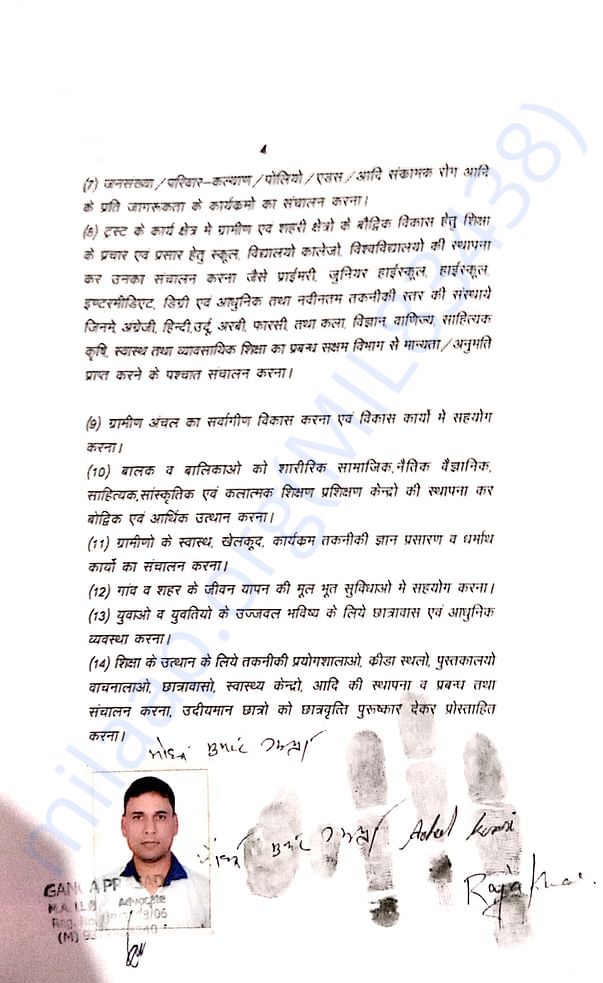 4
(7) जनसंख्या/परिवार-कल्याण/पोलियो/एडस/आदि संकामक रोग आदि
के प्रति जागरूकता के कार्यकमो का संचालन करना।
(8) ट्रस्ट के कार्य क्षेत्र मे ग्रामीण एवं शहरी क्षेत्रो के बौद्विक विकास हेतु शिक्षा
के प्रचार एवं प्रसार हेतु स्कूल, विद्यालयो कालेजो, विश्वविद्यालयो की स्थापना
कर उनका संचालन करना जैसे प्राईमरी, जुनियर हाईस्कूल, हाईस्कूल,
इण्टरमीडिएट, डिग्री एवं आधुनिक तथा नवीनतम तकनीकी स्तर की संस्थाये
जिनमे, अंग्रेजी, हिन्दी,उर्दू, अरबी, फारसी, तथा कला, विज्ञान, वाणिज्य, साहित्यक
कृषि, स्वास्थ तथा व्यावसायिक शिक्षा का प्रबन्ध सक्षम विभाग से मान्यता/अनुमति
प्राप्त करने के पश्चात संचालन करना।
(9) ग्रामीण अंचल का सर्वागीण विकास करना एवं विकास कार्यो मे सहयोग
करना।
(10) बालक व बालिकाओ को शारीरिक सामाजिक,नैतिक वैज्ञानिक,
साहित्यक,सांस्कृतिक एवं कलात्मक शिक्षण प्रशिक्षण केन्द्रो की स्थापना कर
बोद्विक एवं आर्थिक उत्थान करना।
(11) ग्रामीणो के स्वास्थ, खेलकूद, कार्यकम तकनीकी ज्ञान प्रसारण व धर्माथ
कार्यो का संचालन करना।
(12) गांव व शहर के जीवन यापन की मूल भूत सुविधाओ मे सहयोग करना।
(13) युवाओ व युवतियो के उज्जवल भविष्य के लिये छात्रावास एवं आधुनिक
व्यवस्था करना।
(14) शिक्षा के उत्थान के लिये तकनीकी प्रयोगशालाओ, कीडा स्थलो, पुस्तकालयो
वाचनालाओ, छात्रावासो, स्वास्थ्य केन्द्रो, आदि की स्थापना व प्रबन्ध तथा
संचालन करना, उदीयमान छात्रो को छात्रवृत्ति पुरूष्कार देकर प्रोस्ताहित
करना।
Advocate
milaap.org(MIL83438)